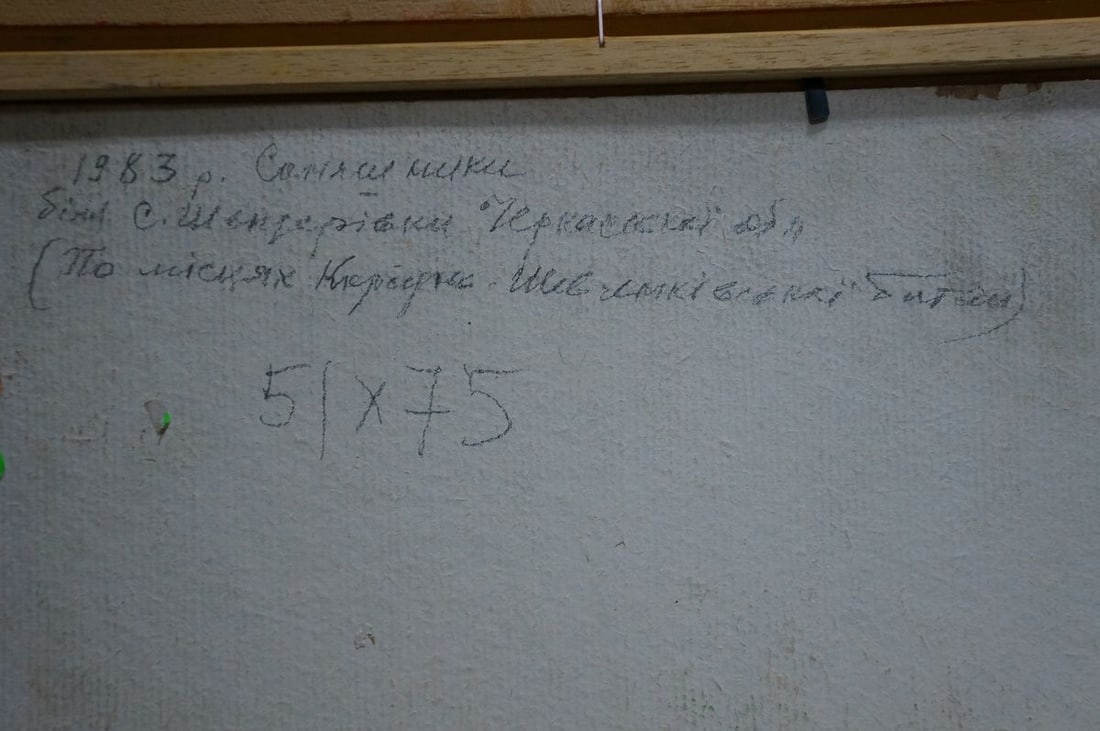 1983 р. Соняшники
біля с. Шендерівки Черкаської обл
(По місцях Корсунь-Шевченківської битви)
51х75